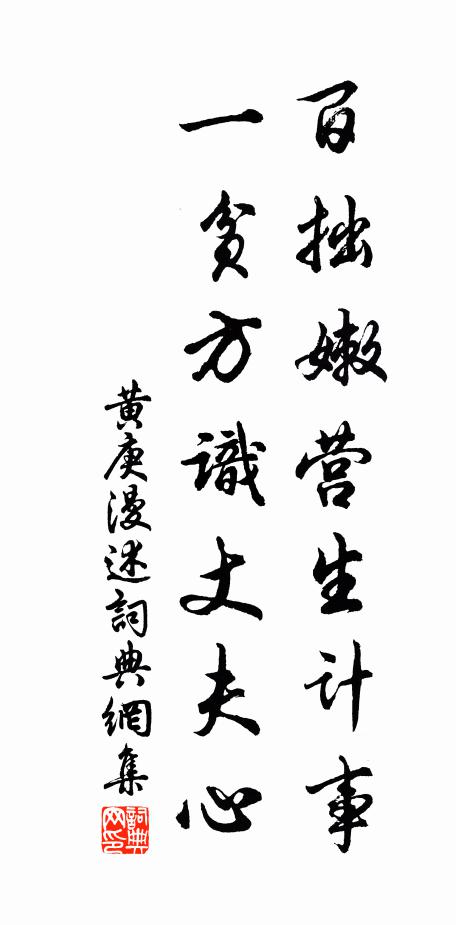 百拙嫩营生计事
一贫方識丈夫心
黄庚漫述詞典網集
詞典網印